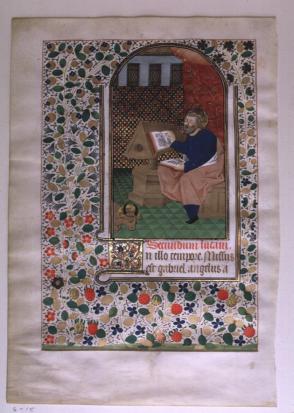 Secundum lucam.
In illo tempore. Missus
est gabriel angelus a